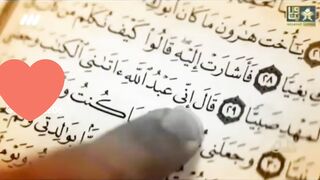 يَٰٓأُخْتَ هَٰرُونَ مَا كَانَ
بَغِيًّا ٢٨ فَأَشَارَتْ إِلَيْهِ قَالُوا۟ كَيْفَ نُكَلِّمُ
ٱلْمَهْدِ صَبِيًّا ٢٩ قَالَ إِنِّى عَبْدُ ٱللَّهِ ءَاتَىٰنِىَ ٱلْكِتَٰبَ
٣٠ وَجَعَلَنِى مَا كُنتُ
بِوَٰلِدَتِى وَلَمْ
وَيَوْمَ